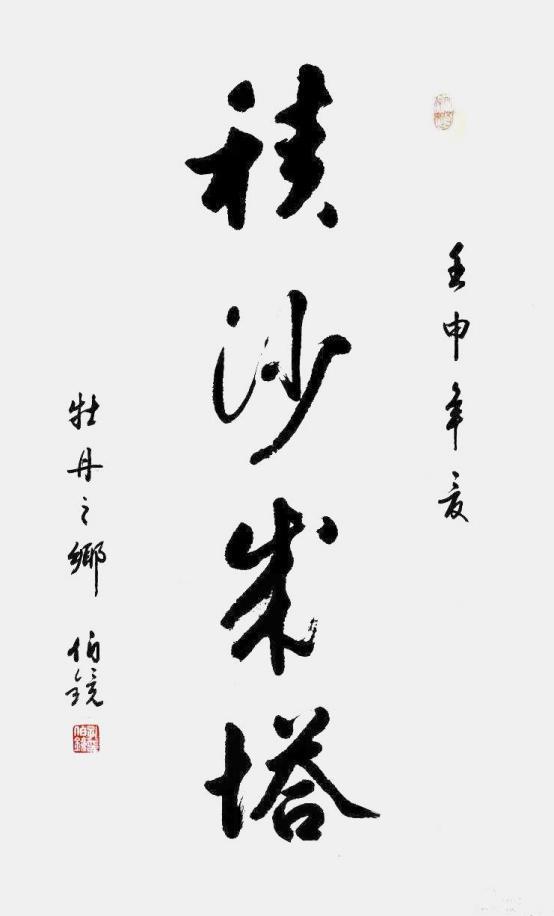 壬申年夏
積沙成塔
牡丹之鄉 伯鏡